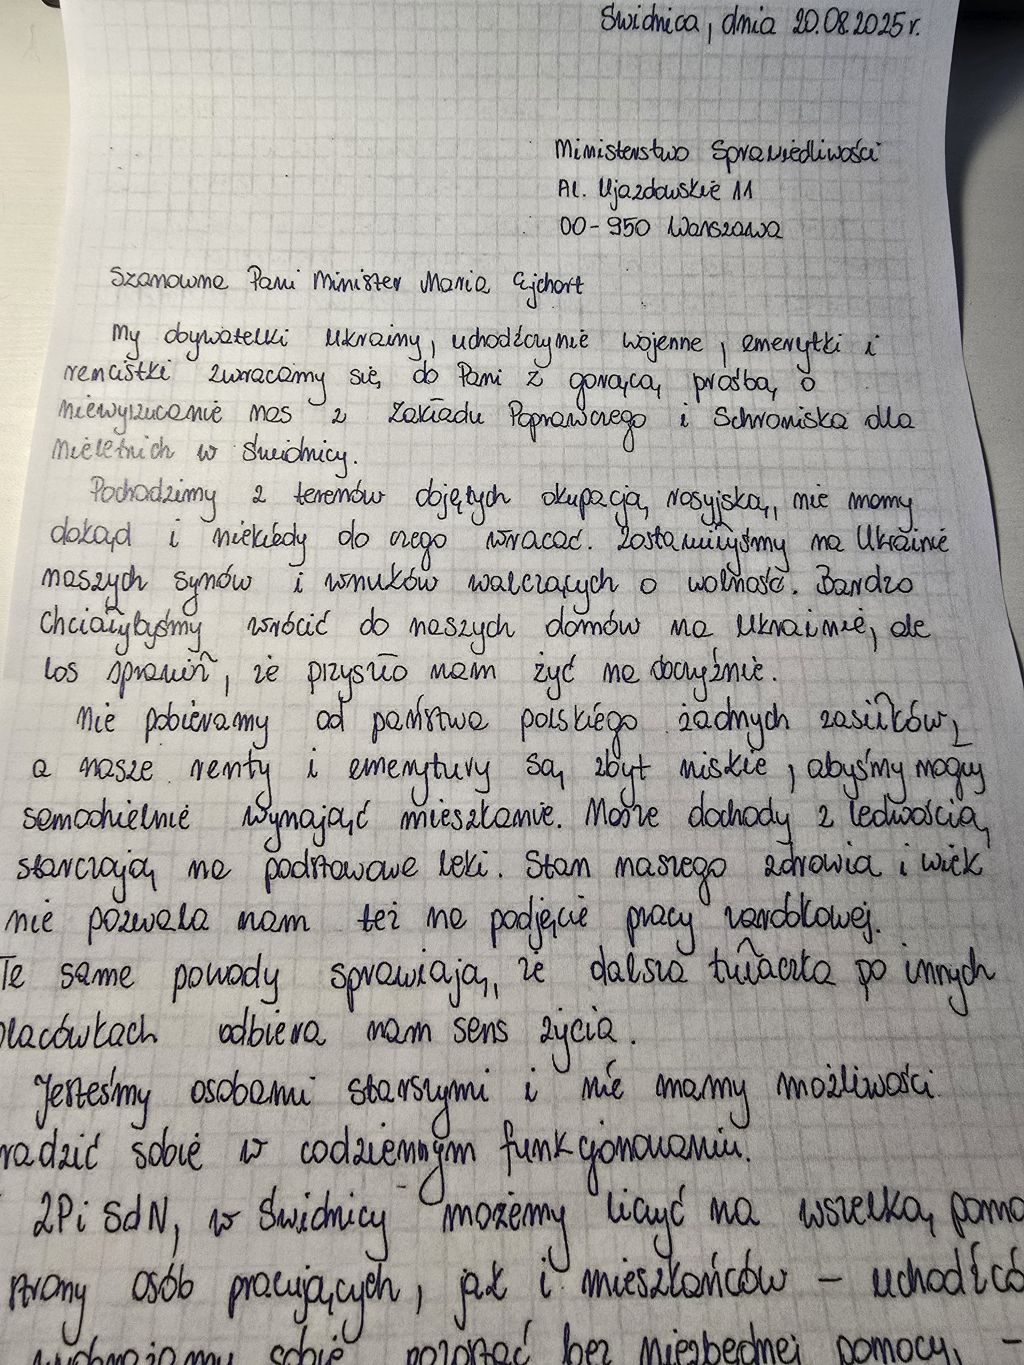 Świdnica, dnia 20.08.2025 r.
Ministerstwo Sprawiedliwości
Al. Ujazdowskie 11
00-950 Warszawa
Szanowna Pani Minister Maria Ejchart
My obywatelki Ukrainy, uchodźczynie wojenne, emerytki i
rencistki zwracamy się do Pani z gorącą prośbą o
niewyrzucanie nas z Zakładu Poprawczego i Schroniska dla
Nieletnich w Świdnicy.
Pochodzimy z terenów objętych okupacją rosyjską, nie mamy
dokąd i niekiedy do czego wracać. Zostawiłyśmy na Ukrainie
naszych synów i wnuków walczących o wolność. Bardzo
chciałybyśmy wrócić do naszych domów na Ukrainie, ale
los sprawił, że przyszło nam żyć na obczyźnie.
Nie pobieramy od państwa polskiego żadnych zasiłków,
a nasze renty i emerytury są zbyt niskie, abyśmy mogły
samodzielnie wynająć mieszkanie. Nasze dochody z ledwością
starczają na podstawowe leki. Stan naszego zdrowia i wiek
nie pozwala nam też na podjęcie pracy zarobkowej.
Te same powody sprawiają, że dalsza tułaczka po innych
placówkach odbiera nam sens życia.
Jesteśmy osobami starszymi i nie mamy możliwości
radzić sobie w codziennym funkcjonowaniu.
ZPi SdN, w Świdnicy możemy liczyć na wszelką pomo
strony osób pracujących, jak i mieszkańców – uchodźcó
sobie pozostać bez niezbędnej pomocy, –